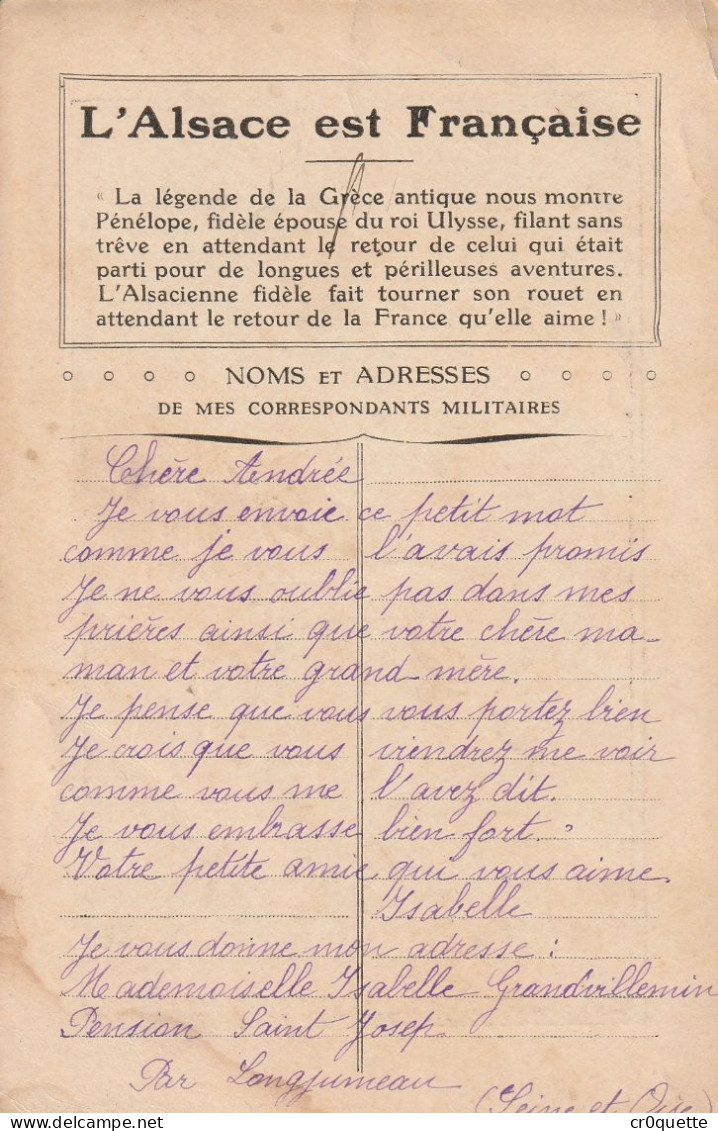 L'Alsace est Française
« La légende de la Grèce antique nous montre
Pénélope, fidèle épouse du roi Ulysse, filant sans
trêve en attendant le retour de celui qui était
parti pour de longues et périlleuses aventures.
L'Alsacienne fidèle fait tourner son rouet en
attendant le retour de la France qu'elle aime ! »
NOMS ET ADRESSES
DE MES CORRESPONDANTS MILITAIRES
Chère Andrée
Je vous envoie ce petit mot
comme je vous l'avais promis
Je ne vous oublie pas dans mes
prières ainsi que votre chère ma-
man et votre grand mère.
Je pense que vous vous portez bien
Je crois que vous viendrez me voir
comme vous me l'avez dit.
Je vous embrasse bien fort.
Votre petite amie qui vous aime.
Isabelle
Je vous donne mon adresse :
Mademoiselle Isabelle Grandvillemin
Pension Saint Josep
Par Longjumeau
(Seine et Oise)
©delcampe.net
cr0quette